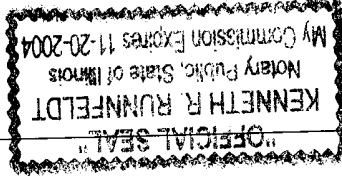 "OFFICIAL SEAL"
KENNETH R. RUNNFELDT
Notary Public, State of Illinois
My Commission Expires 11-20-2004